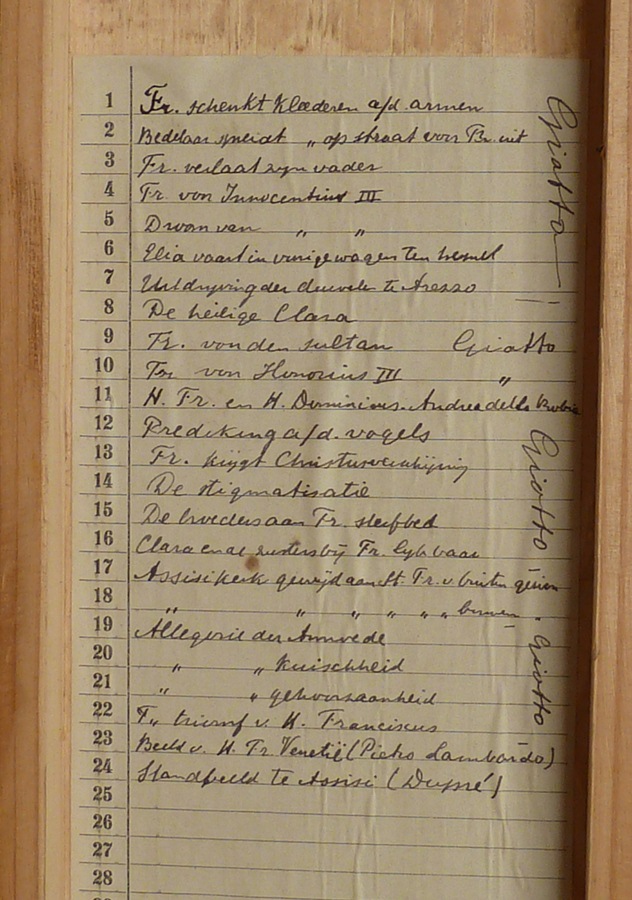 1 Fr. schenkt Klederen a/d. armen
2 Bedelaar spreidt „ op straat voor Fr. uit
3 Fr. verlaat zyn vader
4 Fr. voor Innocentius III
5 Droom van „ „
6 Elia vaart in vurige wagen ten hemel
7 Uitdryving der duivelen te Arezzo
8 De heilige Clara
9 Fr. voor den sultan Giotto
10 Fr. voor Honorius III „
11 H. Fr. en H. Dominicus. Andrea della Robbia
12 Prediking a/d. vogels
13 Fr. krijgt Christusverschijning
14 De stigmatisatie
15 De broeders aan Fr. sterfbed
16 Clara en de zusters bij Fr. lijkbaar
17 Assisi kerk gewijd aan St. Fr. v. buiten gezien
18 „ „ „ „ „ „ binnen „
19 Allegorie der Armoede
20 „ „ Kuischheid
21 „ „ gehoorzaamheid
22 T„ triomf v. H. Franciscus
23 Beeld v. H. Fr. Venetië (Pietro Lombardo)
24 Standbeeld te Assisi (Dupré)
25
26
27
28
Giotto
Giotto
Giotto